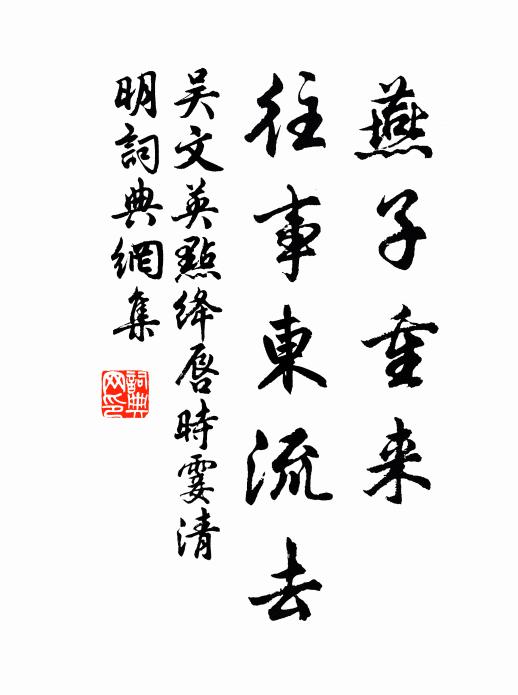 燕子重来
往事東流去
吴文英點绛唇時霎清
明詞典網集
詞典
网印